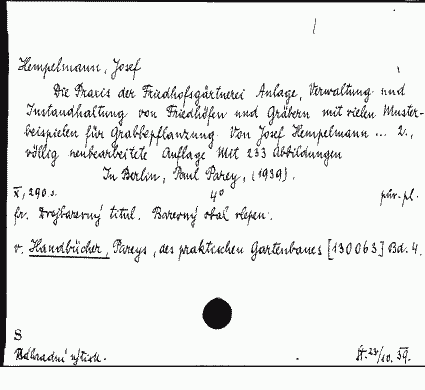 Hempelmann, Josef
Die Praxis der Friedhofsgärtnerei Anlage, Verwaltung und
Instandhaltung von Friedhöfen und Gräbern mit vielen Muster-
beispielen für Grabbepflanzung. Von Josef Hempelmann ... 2.,
völlig neubearbeitete Auflage Mit 233 Abbildungen
In Berlin, Paul Parey, (1939).
X, 290 s. 4° plv. pl.
fr. Dvojbarevný titul. Barevný obal vlepen.
v. Handbücher, Pareys, des praktischen Gartenbaues [130063] Bd. 4.
S
Náhradní výtisk. 24/10. 39.